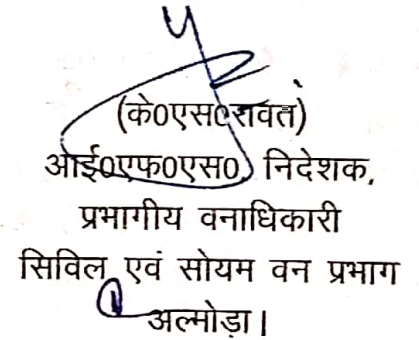 (के0एस0रावत)
आई0एफ0एस0, निदेशक,
प्रभागीय वनाधिकारी
सिविल एवं सोयम वन प्रभाग
अल्मोड़ा।